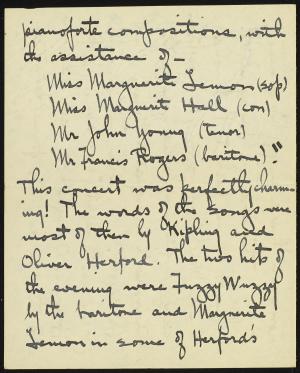 pianoforte compositions, with
the assistance of—
Miss Marguerite Lemon (sop)
Miss Marguerit Hall (con)
Mr John Young (tenor)
Mr Francis Rogers (baritone)."
This concert was perfectly charm-
ing! The words of the songs were
most of them by Kipling and
Oliver Herford. The two hits of
the evening were Fuzzy Wuzzy
by the baritone and Marguerite
Lemon in some of Herford's